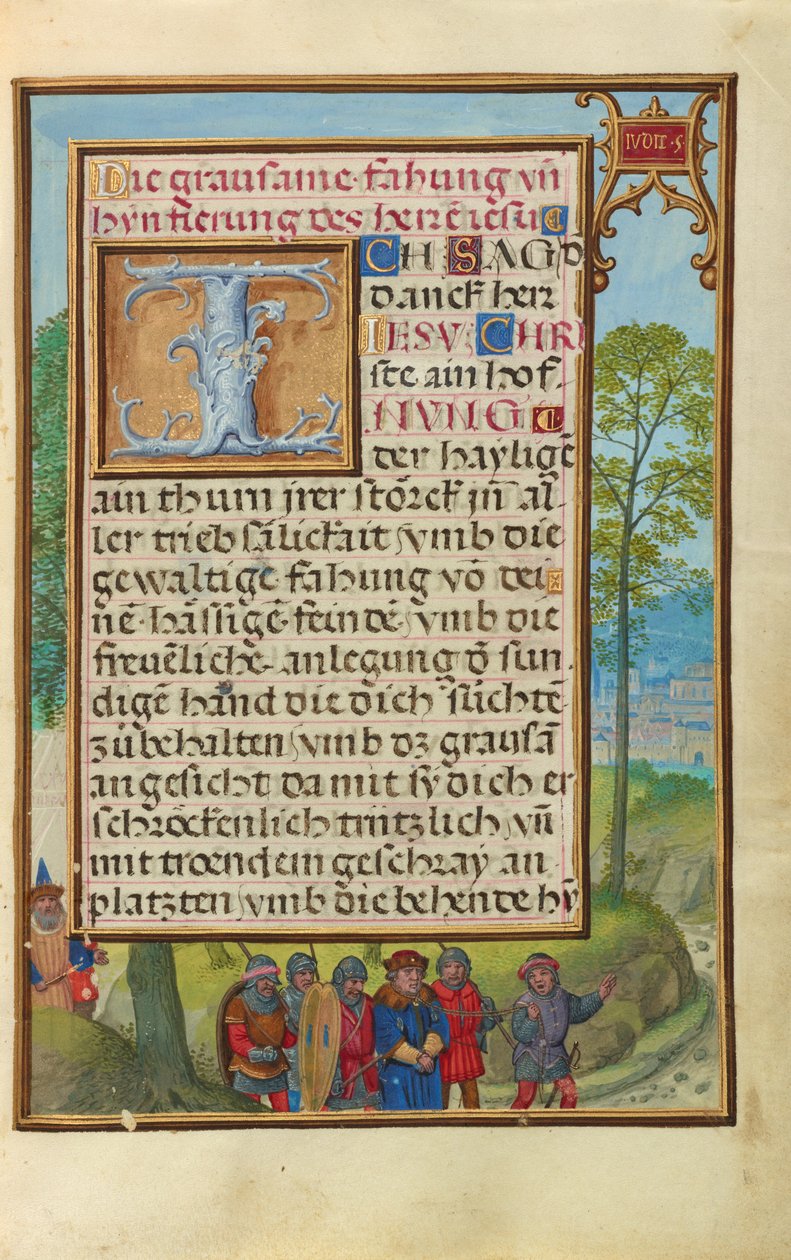 IVDIT · 5
Die grausame · fahung vn̄
hyn fierung des herrē iesu
I CH SAG D
danck herr
IESV CHRI
ste ain hof-
NVNG
der hayligē
ain thurn jrer störck jn̄ al-
ler trieb sälickait vmb die
gewaltige fahung vō dei
nē hässigē feindē vmb die
freuēliche anlegung d̄ sun-
digē hānd die dich sůchtē
zůbehalten vmb dz grausā
angesicht damit sy dich er
schröckenlich trütz lich vn̄
mit troendem geschray an-
platzten vmb die behende hy̅